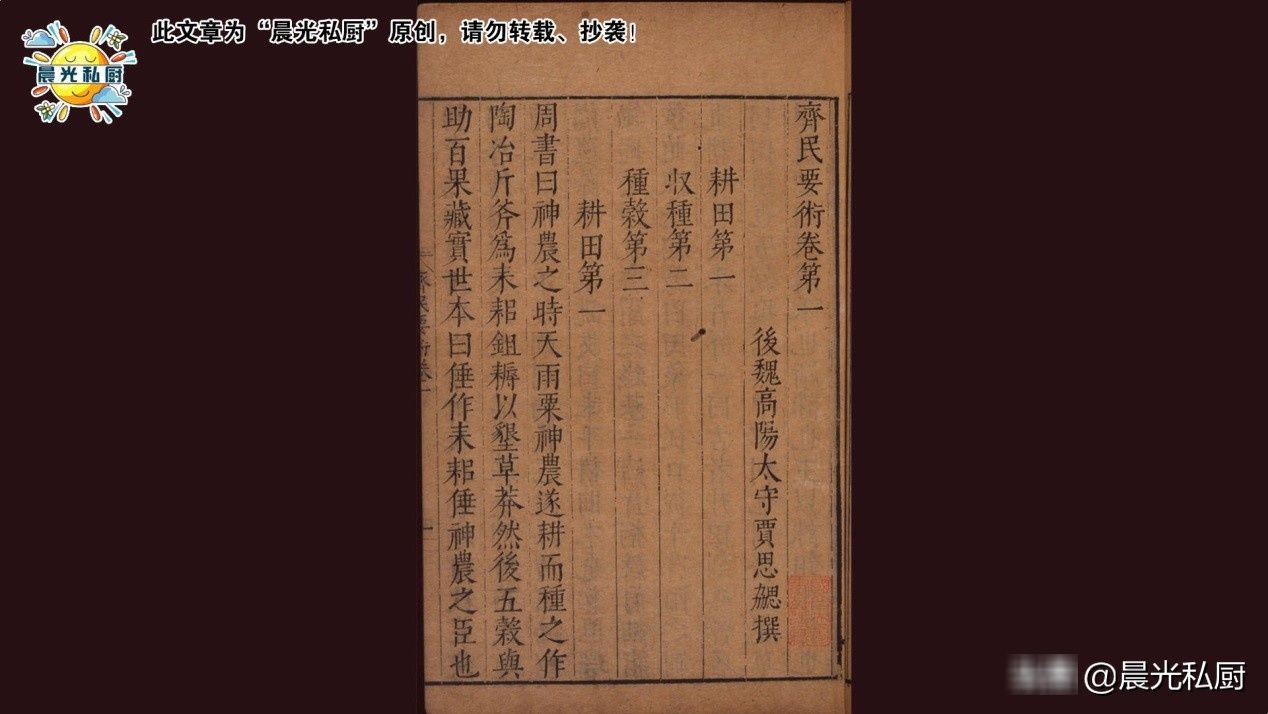 此文章为“晨光私厨”原创，请勿转载、抄袭！
晨光私厨
齊民要術卷第一
後魏高陽太守賈思勰撰
耕田第一
収種第二
種穀第三
耕田第一
周書曰神農之時天雨粟神農遂耕而種之作
陶冶斤斧爲耒耜鉏耨以墾草莽然後五穀與
助百果藏實世本曰倕作耒耜倕神農之臣也
@晨光私厨